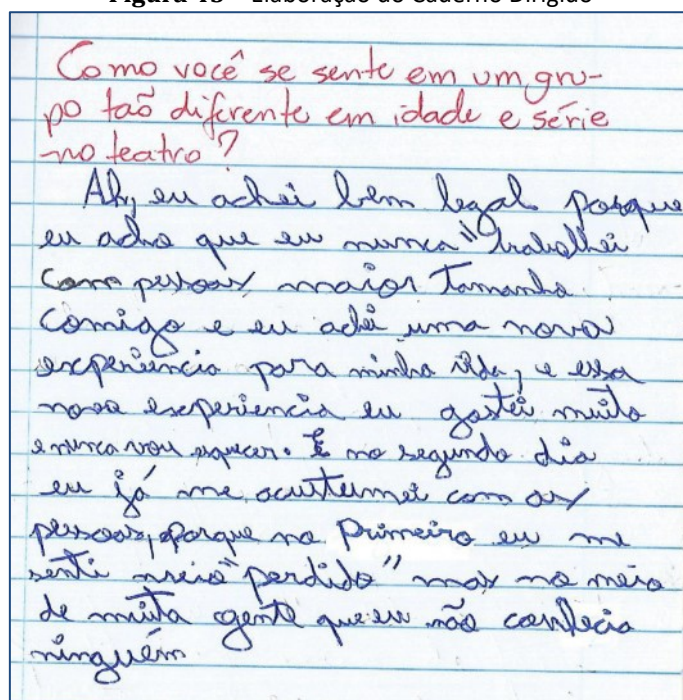 Figura 13 – Elaboração do Caderno Dirigido
Como você se sente em um gru-
po taõ diferente em idade e série
no teatro?
Ah, eu achei bem legal porque
eu acho que eu nunca "trabalhei
com pessoas maior Tamanho
comigo e eu achei uma nova
experiencia para minha vida, e essa
nova experiencia eu gostei muito
e nunca vou equecer. E no segundo dia
eu já me acustumei com as
pessoas, porque no primeiro eu me
senti meio "perdido" mas no meio
de muita gente que eu não conhecia
ninguém